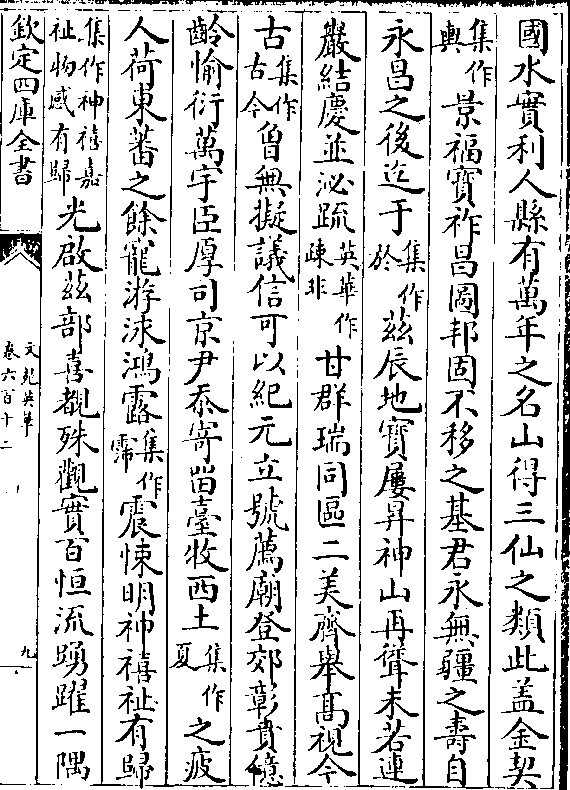 國水實利人縣有萬年之名山得三仙之類此盖金契
集作輿景福寳祚昌圖邦固不移之基君永無疆之壽自
永昌之後迄于集作於兹辰地寳屢昇神山再聳未若連
巖結慶並泌䟽英華作疎非甘群瑞同區二美齊舉髙視今
古集作古今曾無擬議信可以紀元立號薦廟登郊彰貴億
齡愉衍萬宇臣厚司京尹忝寄留臺牧西土集作夏之疲
人荷東蕃之餘寵游泳鴻露集作霈震悚明神禧祉有歸
集作神禧嘉祉物感有歸光啟兹部喜覩殊觀實百恒流踴躍一隅
欽定四庫全書
文苑英華
卷六百十二
九